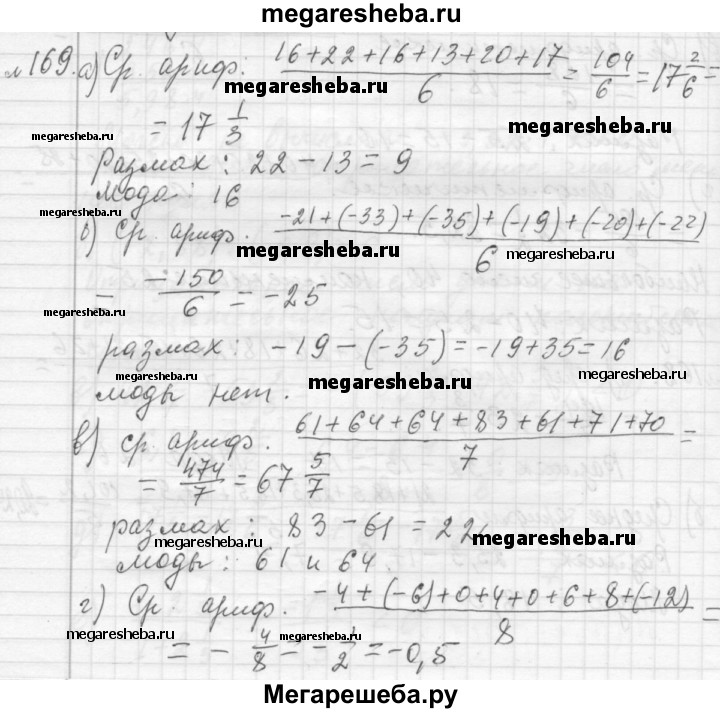 megaresheba.ru
№169. а) Ср. ариф: (16+22+16+13+20+17)/6 = 104/6 = 17 2/6 =
megaresheba.ru megaresheba.ru
megaresheba.ru = 17 1/3
Размах: 22 − 13 = 9
мода: 16
megaresheba.ru
б) Ср. ариф. (−21+(−33)+(−35)+(−19)+(−20)+(−22))/6
megaresheba.ru megaresheba.ru
= −150/6 = −25
размах: −19 − (−35) = −19+35 = 16
megaresheba.ru megaresheba.ru
моды нет.
megaresheba.ru
в) ср. ариф. (61+64+64+83+61+71+70)/7 =
= 474/7 = 67 5/7
размах: 83 − 61 = 22
megaresheba.ru megaresheba.ru
моды: 61 и 64.
г) Ср. ариф. (−4+(−6)+0+4+0+6+8+(−12))/8 =
megaresheba.ru megaresheba.ru
= − 4/8 = − 1/2 = −0,5
Мегарешеба.ру